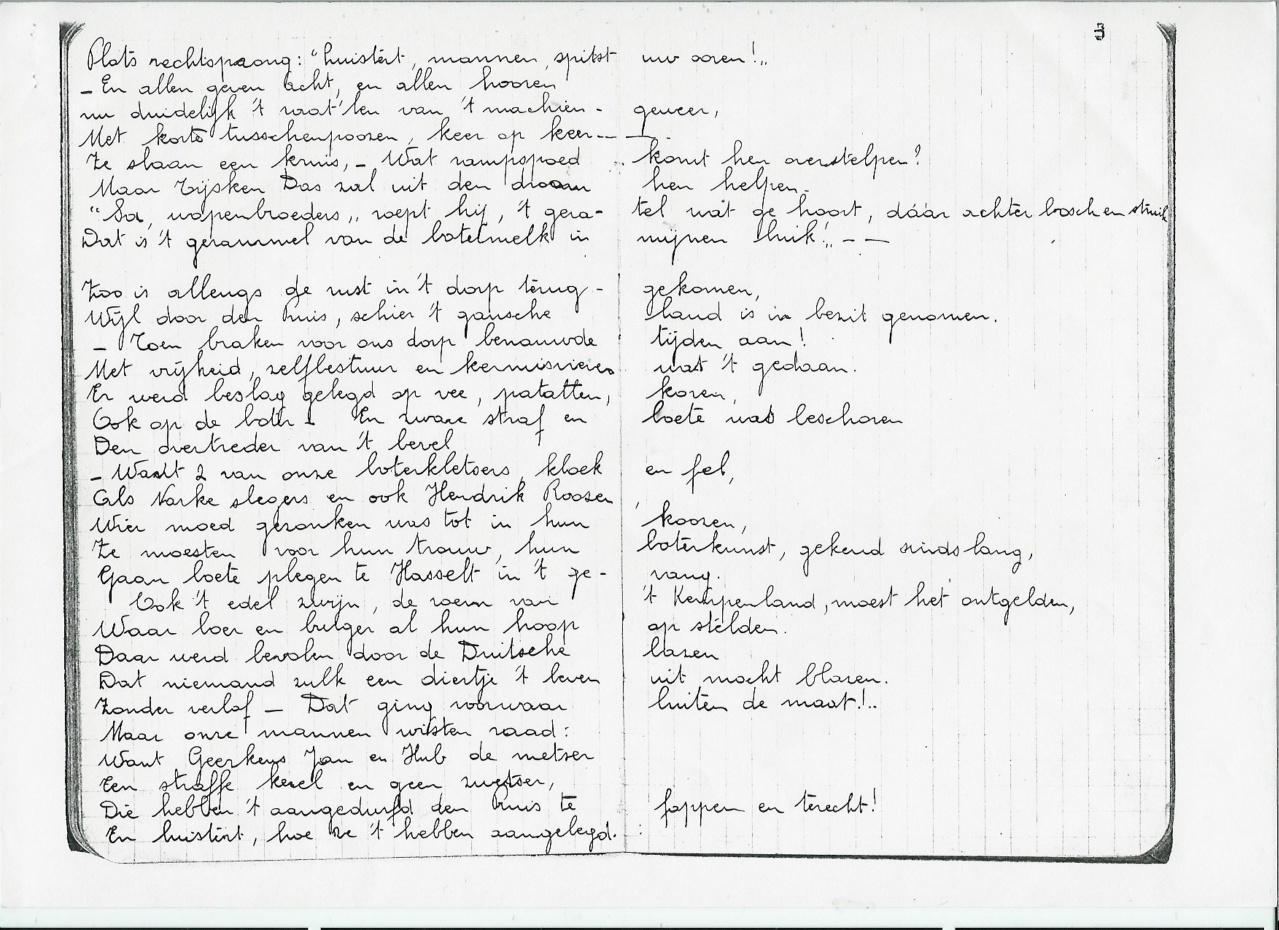 3
Plots rechtsprong: "luistert, mannen, spitst uw ooren!"
- En allen geven acht, en allen hooren
nu duidelijk 't raat'len van 't machien - geweer,
Met korte tusschenpoozen, keer op keer-- --.
Ze slaan een kruis, - Wat rampspoed komt hen overstelpen?
Maar Tijsken Das zal uit den droom hen helpen.
"Sa, wapenbroeders,, roept hij, 't gera- tel wat ge hoort, dáár achter bosch en struik
Dat is 't gerammel van de botelmelk in mijnen buik!,, - -
Zoo is allengs de rust in 't dorp terug - gekomen,
Wijl door den Pruis, schier 't gansche land is in bezit genomen.
- Toen braken voor ons dorp benauwde tijden aan!
Met vrijheid, zelfbestuur en kermisvieren was 't gedaan.
Er werd beslag gelegd op vee, patatten, koren,
Ook op de boter - En zware straf en boete was beschoren
Den overtreder van 't bevel
- Want 2 van onze boterkletsers, kloek en fel,
Als Narke slegers en ook Hendrik Roosen
Wier moed gezonken was tot in hun koozen,
Ze moesten voor hun trouw, hun boterkunst, gekend sinds lang,
Gaan boete plegen te Hasselt in 't ge- vang.
Ook 't edel zwijn, de roem van 't Kempenland, moest het ontgelden,
Waar boer en burger al hun hoop op stelden.
Daar werd bevolen door de Duitsche bazen
Dat niemand zulk een diertje 't leven uit mocht blazen.
Zonder verlof - Dat ging voorwaar buiten de maat!..
Maar onze mannen wisten raad:
Want Geerkens Jan en Hub de metser
Een straffe kerel en geen zwetser,
Die hebben 't aangedurfd den Pruis te foppen en terecht!
En luistert, hoe ze 't hebben aangelegd. :